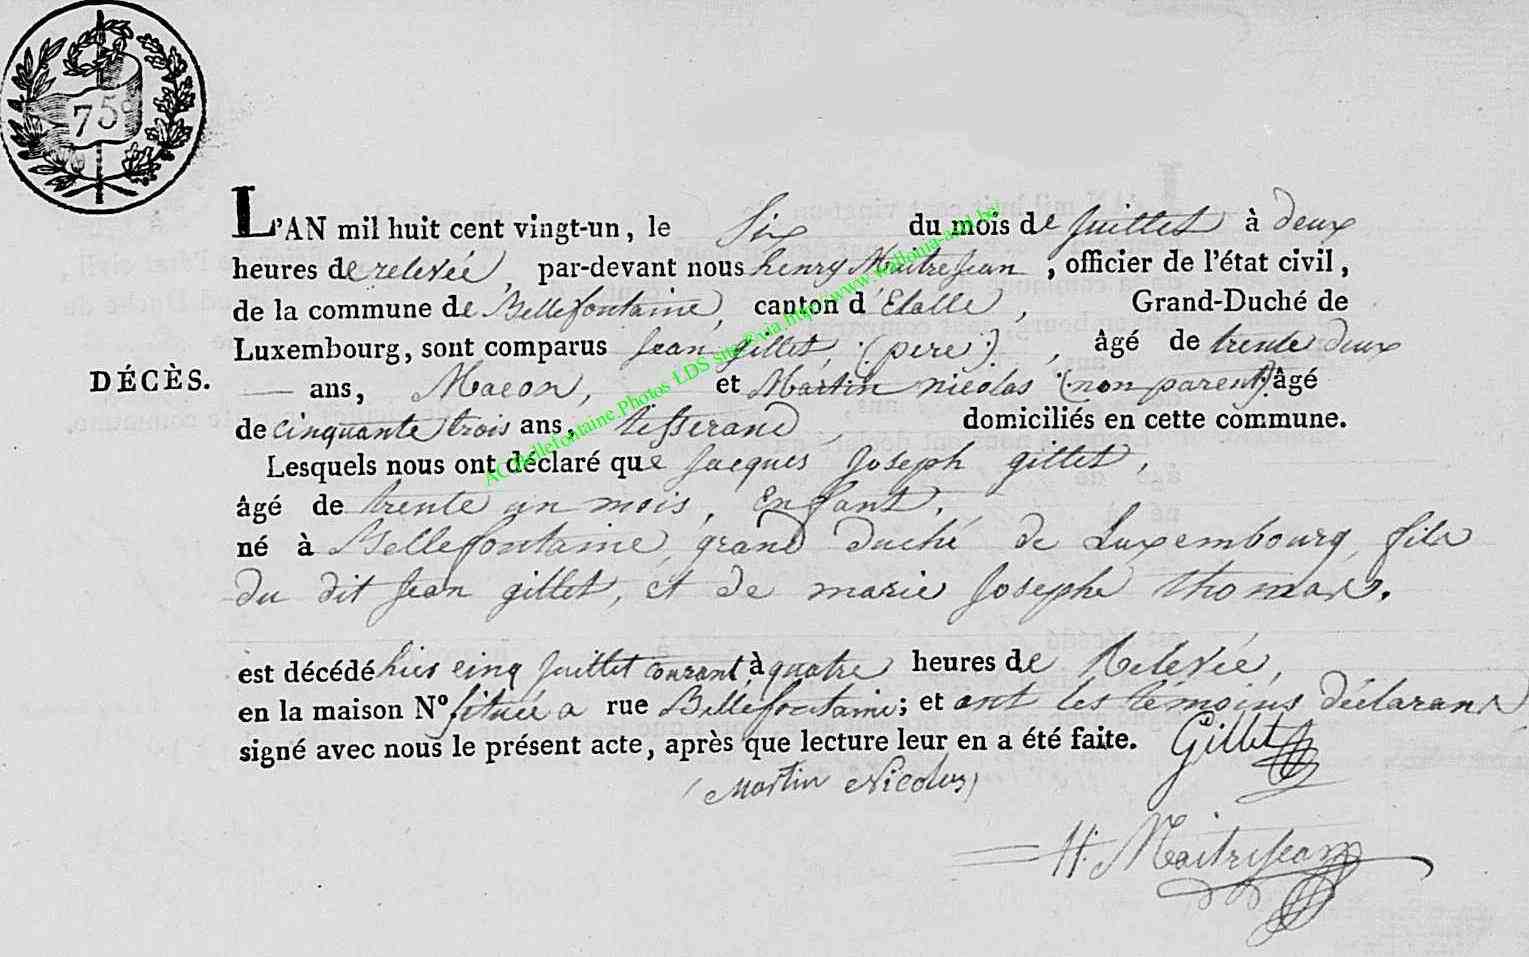 75c
L'AN mil huit cent vingt-un, le Six du mois de juillet à deux
heures de relevée, par-devant nous henry Maitrejean, officier de l'état civil,
de la commune de Bellefontaine, canton d'Etalle, Grand-Duché de
Luxembourg, sont comparus jean gillet, (pere), âgé de trente deux
DÉCÈS.
— ans, Macon, et Martin nicolas (non parent) âgé
de cinquante trois ans, tisserand, domiciliés en cette commune.
Lesquels nous ont déclaré que jacques joseph gillet,
âgé de trente un mois, enfant,
né à Bellefontaine, grand duché de Luxembourg, fils
du dit jean gillet, et de marie josephe thomas.
est décédé hier cinq juillet courant, à quatre heures de Relevée,
en la maison N° située a rue Bellefontaine; et ont les témoins déclarans
signé avec nous le présent acte, après que lecture leur en a été faite. Gillet
Martin Nicolas
H. Maitrejean
AC Bellefontaine.Photos LDS site @via.http://www.wallonia-asbl.be/